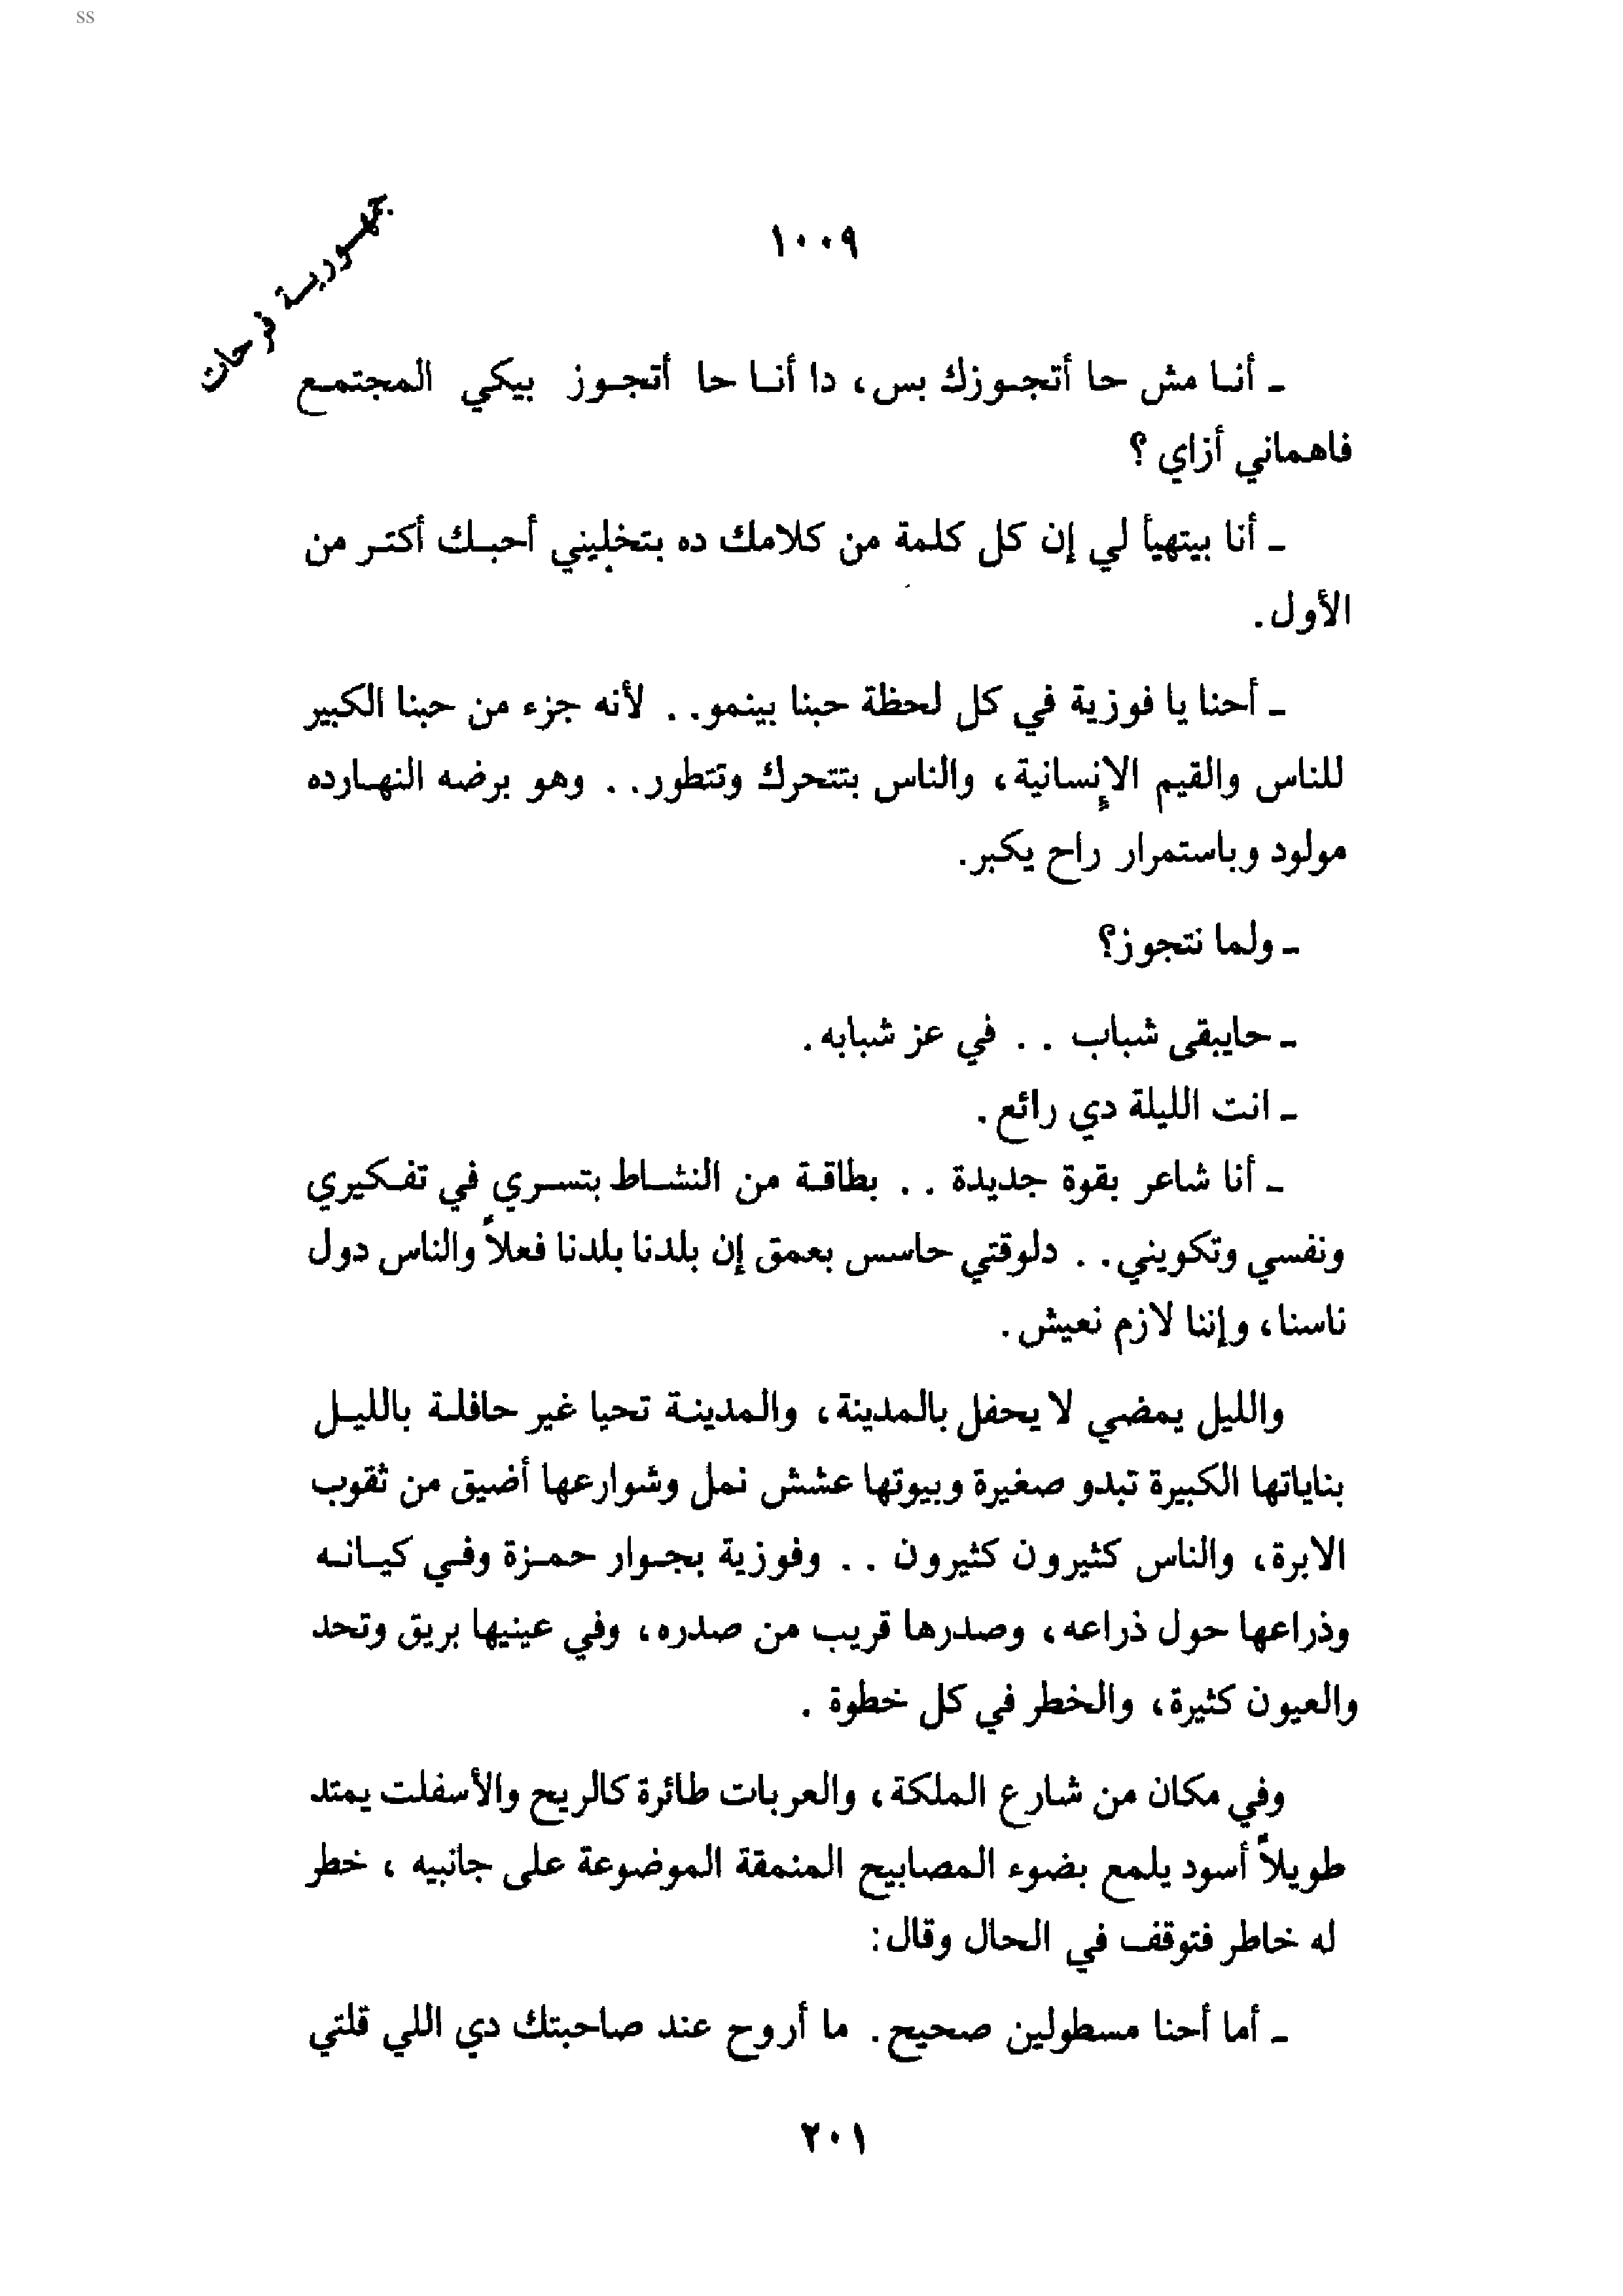 ss
جمهورية فرحات
١٠٠٩
ـ أنا مش حا أتجوزك بس، دا أنا حا أتجوز بيكي المجتمع
فاهماني أزاي ؟
ـ أنا بيتهيأ لي إن كل كلمة من كلامك ده بتخليني أحبك أكتر من
الأول.
ـ أحنا يا فوزية في كل لحظة حبنا بينمو.. لأنه جزء من حبنا الكبير
للناس والقيم الإنسانية، والناس بتتحرك وتتطور.. وهو برضه النهارده
مولود وباستمرار راح يكبر.
ـ ولما نتجوز؟
ـ حايبقى شباب .. في عز شبابه.
ـ انت الليلة دي رائع.
ـ أنا شاعر بقوة جديدة .. بطاقة من النشاط بتسري في تفكيري
ونفسي وتكويني.. دلوقتي حاسس بعمق إن بلدنا بلدنا فعلاً والناس دول
ناسنا، وإننا لازم نعيش.
والليل يمضي لا يحفل بالمدينة، والمدينة تحيا غير حافلة بالليل
بناياتها الكبيرة تبدو صغيرة وبيوتها عشش نمل وشوارعها أضيق من ثقوب
الابرة، والناس كثيرون كثيرون .. وفوزية بجوار حمزة وفي كيانه
وذراعها حول ذراعه، وصدرها قريب من صدره، وفي عينيها بريق وتحد
والعيون كثيرة، والخطر في كل خطوة .
وفي مكان من شارع الملكة، والعربات طائرة كالريح والأسفلت يمتد
طويلاً أسود يلمع بضوء المصابيح المنمقة الموضوعة على جانبيه ، خطر
له خاطر فتوقف في الحال وقال:
ـ أما أحنا مسطولين صحيح. ما أروح عند صاحبتك دي اللي قلتي
٢٠١